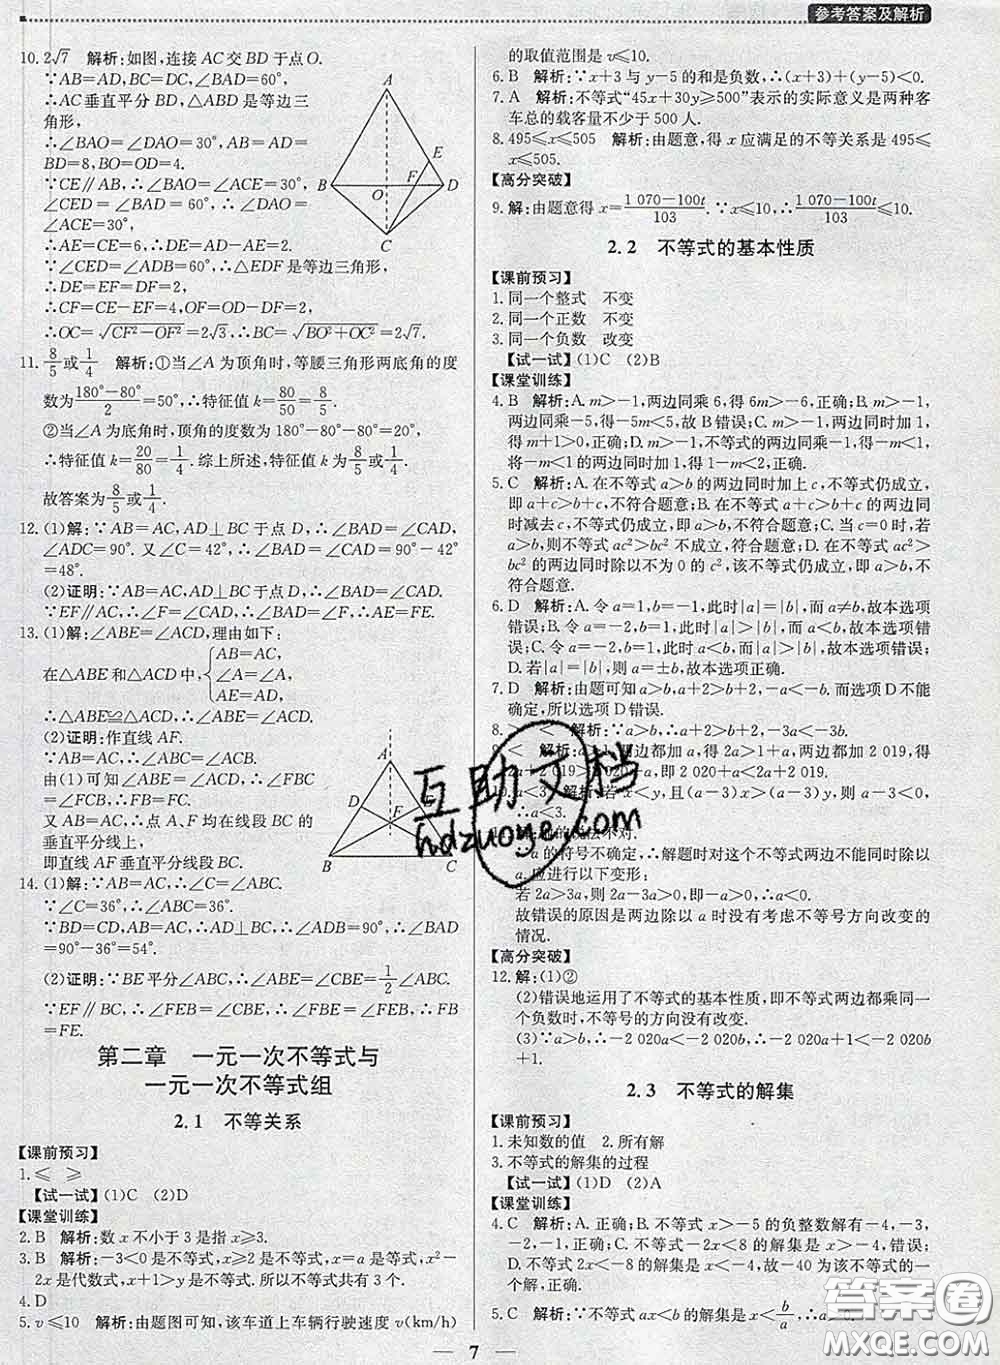 参考答案及解析
10. 2√7　解析:如图,连接 AC 交 BD 于点 O.
∵AB=AD,BC=DC,∠BAD=60°,
∴AC 垂直平分 BD,△ABD 是等边三
角形,
∴∠BAO=∠DAO=30°,AB=AD=
BD=8,BO=OD=4.
∵CE∥AB,∴∠BAO=∠ACE=30°,
∠CED=∠BAD=60°,∴∠DAO=
∠ACE=30°,
∴AE=CE=6,∴DE=AD-AE=2.
∵∠CED=∠ADB=60°,∴△EDF是等边三角形,
∴DE=EF=DF=2,
∴CF=CE-EF=4,OF=OD-DF=2,
∴OC=√(CF²-OF²)=2√3,∴BC=√(BO²+OC²)=2√7.
11. 8/5或1/4　解析:①当∠A 为顶角时,等腰三角形两底角的度
数为(180°-80°)/2=50°,∴特征值 k=80/50=8/5.
②当∠A为底角时,顶角的度数为180°-80°-80°=20°,
∴特征值 k=20/80=1/4.综上所述,特征值 k为8/5或1/4.
故答案为8/5或1/4.
12. (1)解:∵AB=AC,AD⊥BC 于点 D,∴∠BAD=∠CAD,
∠ADC=90°. 又∠C=42°,∴∠BAD=∠CAD=90°-42°
=48°.
(2)证明:∵AB=AC,AD⊥BC于点D,∴∠BAD=∠CAD.
∵EF∥AC,∴∠F=∠CAD,∴∠BAD=∠F,∴AE=FE.
13. (1)解:∠ABE=∠ACD,理由如下:
在△ABE 和△ACD 中,{AB=AC,
∠A=∠A,
AE=AD,
∴△ABE≌△ACD,∴∠ABE=∠ACD.
(2)证明:作直线 AF.
∵AB=AC,∴∠ABC=∠ACB.
由(1)可知∠ABE=∠ACD,
∴∠FBC=∠FCB,∴FB=FC.
又 AB=AC,∴点 A、F 均在线段 BC 的
垂直平分线上,
即直线 AF 垂直平分线段 BC.
14. (1)解:∵AB=AC,∴∠C=∠ABC.
∵∠C=36°,∴∠ABC=36°.
∵BD=CD,AB=AC,∴AD⊥BC,∴∠ADB=90°,∴∠BAD
=90°-36°=54°.
(2)证明:∵BE平分∠ABC,∴∠ABE=∠CBE=1/2∠ABC.
∵EF∥BC,∴∠FEB=∠CBE,∴∠FBE=∠FEB,∴FB
=FE.
第二章　一元一次不等式与
一元一次不等式组
2.1　不等关系
【课前预习】
1. ≤　≥
【试一试】(1)C　(2)D
【课堂训练】
2. B　解析:数 x 不小于 3 是指 x≥3.
3. B　解析:-3<0是不等式,x≥2是不等式,x=a是等式,x²-
2x是代数式,x+1>y是不等式.所以不等式共有 3 个.
4. D
5. v≤10　解析:由题图可知,该车道上车辆行驶速度 v(km/h)
的取值范围是 v≤10.
6. B　解析:∵x+3与 y-5的和是负数,∴(x+3)+(y-5)<0.
7. A　解析:不等式“45x+30y≥500”表示的实际意义是两种客
车总的载客量不少于 500 人.
8. 495≤x≤505　解析:由题意,得 x 应满足的不等关系是 495≤
x≤505.
【高分突破】
9. 解:由题意得 x=(1 070-100t)/103. ∵x≤10,∴(1 070-100t)/103≤10.
2.2　不等式的基本性质
【课前预习】
1. 同一个整式　不变
2. 同一个正数　不变
3. 同一个负数　改变
【试一试】(1)C　(2)B
【课堂训练】
4. B　解析:A. m>-1,两边同乘 6,得 6m>-6,正确;B. m>-1,
两边同乘-5,得-5m<5,故 B错误;C. m>-1,两边同时加 1,
得 m+1>0,正确;D. m>-1,不等式的两边同乘-1,得-m<1,
将-m<1的两边同时加1,得1-m<2,正确.
5. C　解析:A. 在不等式 a>b 的两边同时加上 c,不等式仍成立,
即 a+c>b+c,不符合题意;B. 在不等式 a+c>b+c 的两边同
时减去c,不等式仍成立,即 a>b,不符合题意;C. 当 c=0 时,若
a>b,则不等式 ac²>bc² 不成立,符合题意;D. 在不等式 ac²>
bc² 的两边同时除以不为 0 的 c²,该不等式仍成立,即 a>b,不
符合题意.
6. D　解析:A. 令 a=1,b=-1,此时|a|=|b|,而 a≠b,故本选项
错误;B. 令 a=-2,b=1,此时|a|>|b|,而 a<b,故本选项错
误;C. 令 a=-2,b=1,此时|a|>|b|,而 a<b,故本选项错误;
D. 若|a|=|b|,则 a=±b,故本选项正确.
7. D　解析:由题可知 a>b,a+2>b+2,-a<-b,而选项 D不能
确定,所以选项 D错误.
8. >　<　解析:∵a>b,∴a+2>b+2,-3a<-3b.
9. <　解析:a>1,两边都加 a,得 2a>a+1,两边都加 2 019,得
2a+2 019>2 020+a,即 2 020+a<2a+2 019.
10. a<3　解析:若 x<y,且(a-3)x>(a-3)y,则 a-3<0,
∴a<3.
的说法不对.
∵a 的符号不确定,∴解题时对这个不等式两边不能同时除以
a,应进行以下变形:
若 2a>3a,则 2a-3a>0,即-a>0,∴a<0.
故错误的原因是两边除以 a 时没有考虑不等号方向改变的
情况.
【高分突破】
12. 解:(1)②
(2)错误地运用了不等式的基本性质,即不等式两边都乘同一
个负数时,不等号的方向没有改变.
(3)∵a>b,∴-2 020a<-2 020b,∴-2 020a+1<-2 020b
+1.
2.3　不等式的解集
【课前预习】
1. 未知数的值　2. 所有解
3. 不等式的解集的过程
【试一试】(1)A　(2)D
【课堂训练】
4. C　解析:A. 正确;B. 不等式 x>-5 的负整数解有-4,-3,
-2,-1,正确;C. 不等式-2x<8 的解集是 x>-4,错误;
D. 不等式-2x<8的解集是 x>-4,故-40 为该不等式的一个
解,正确.
5. C　解析:∵不等式 ax<b 的解集是 x<b/a,∴a>0.
A B C D E F O
A B C D E F
互助文档
hdzuoye.com
答案圈
MXQE.COM
7